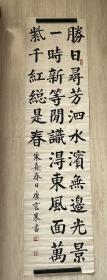 勝日尋芳泗水濱無邊光景
一時新等閒識得東風面萬
紫千紅緫是春
朱熹春日